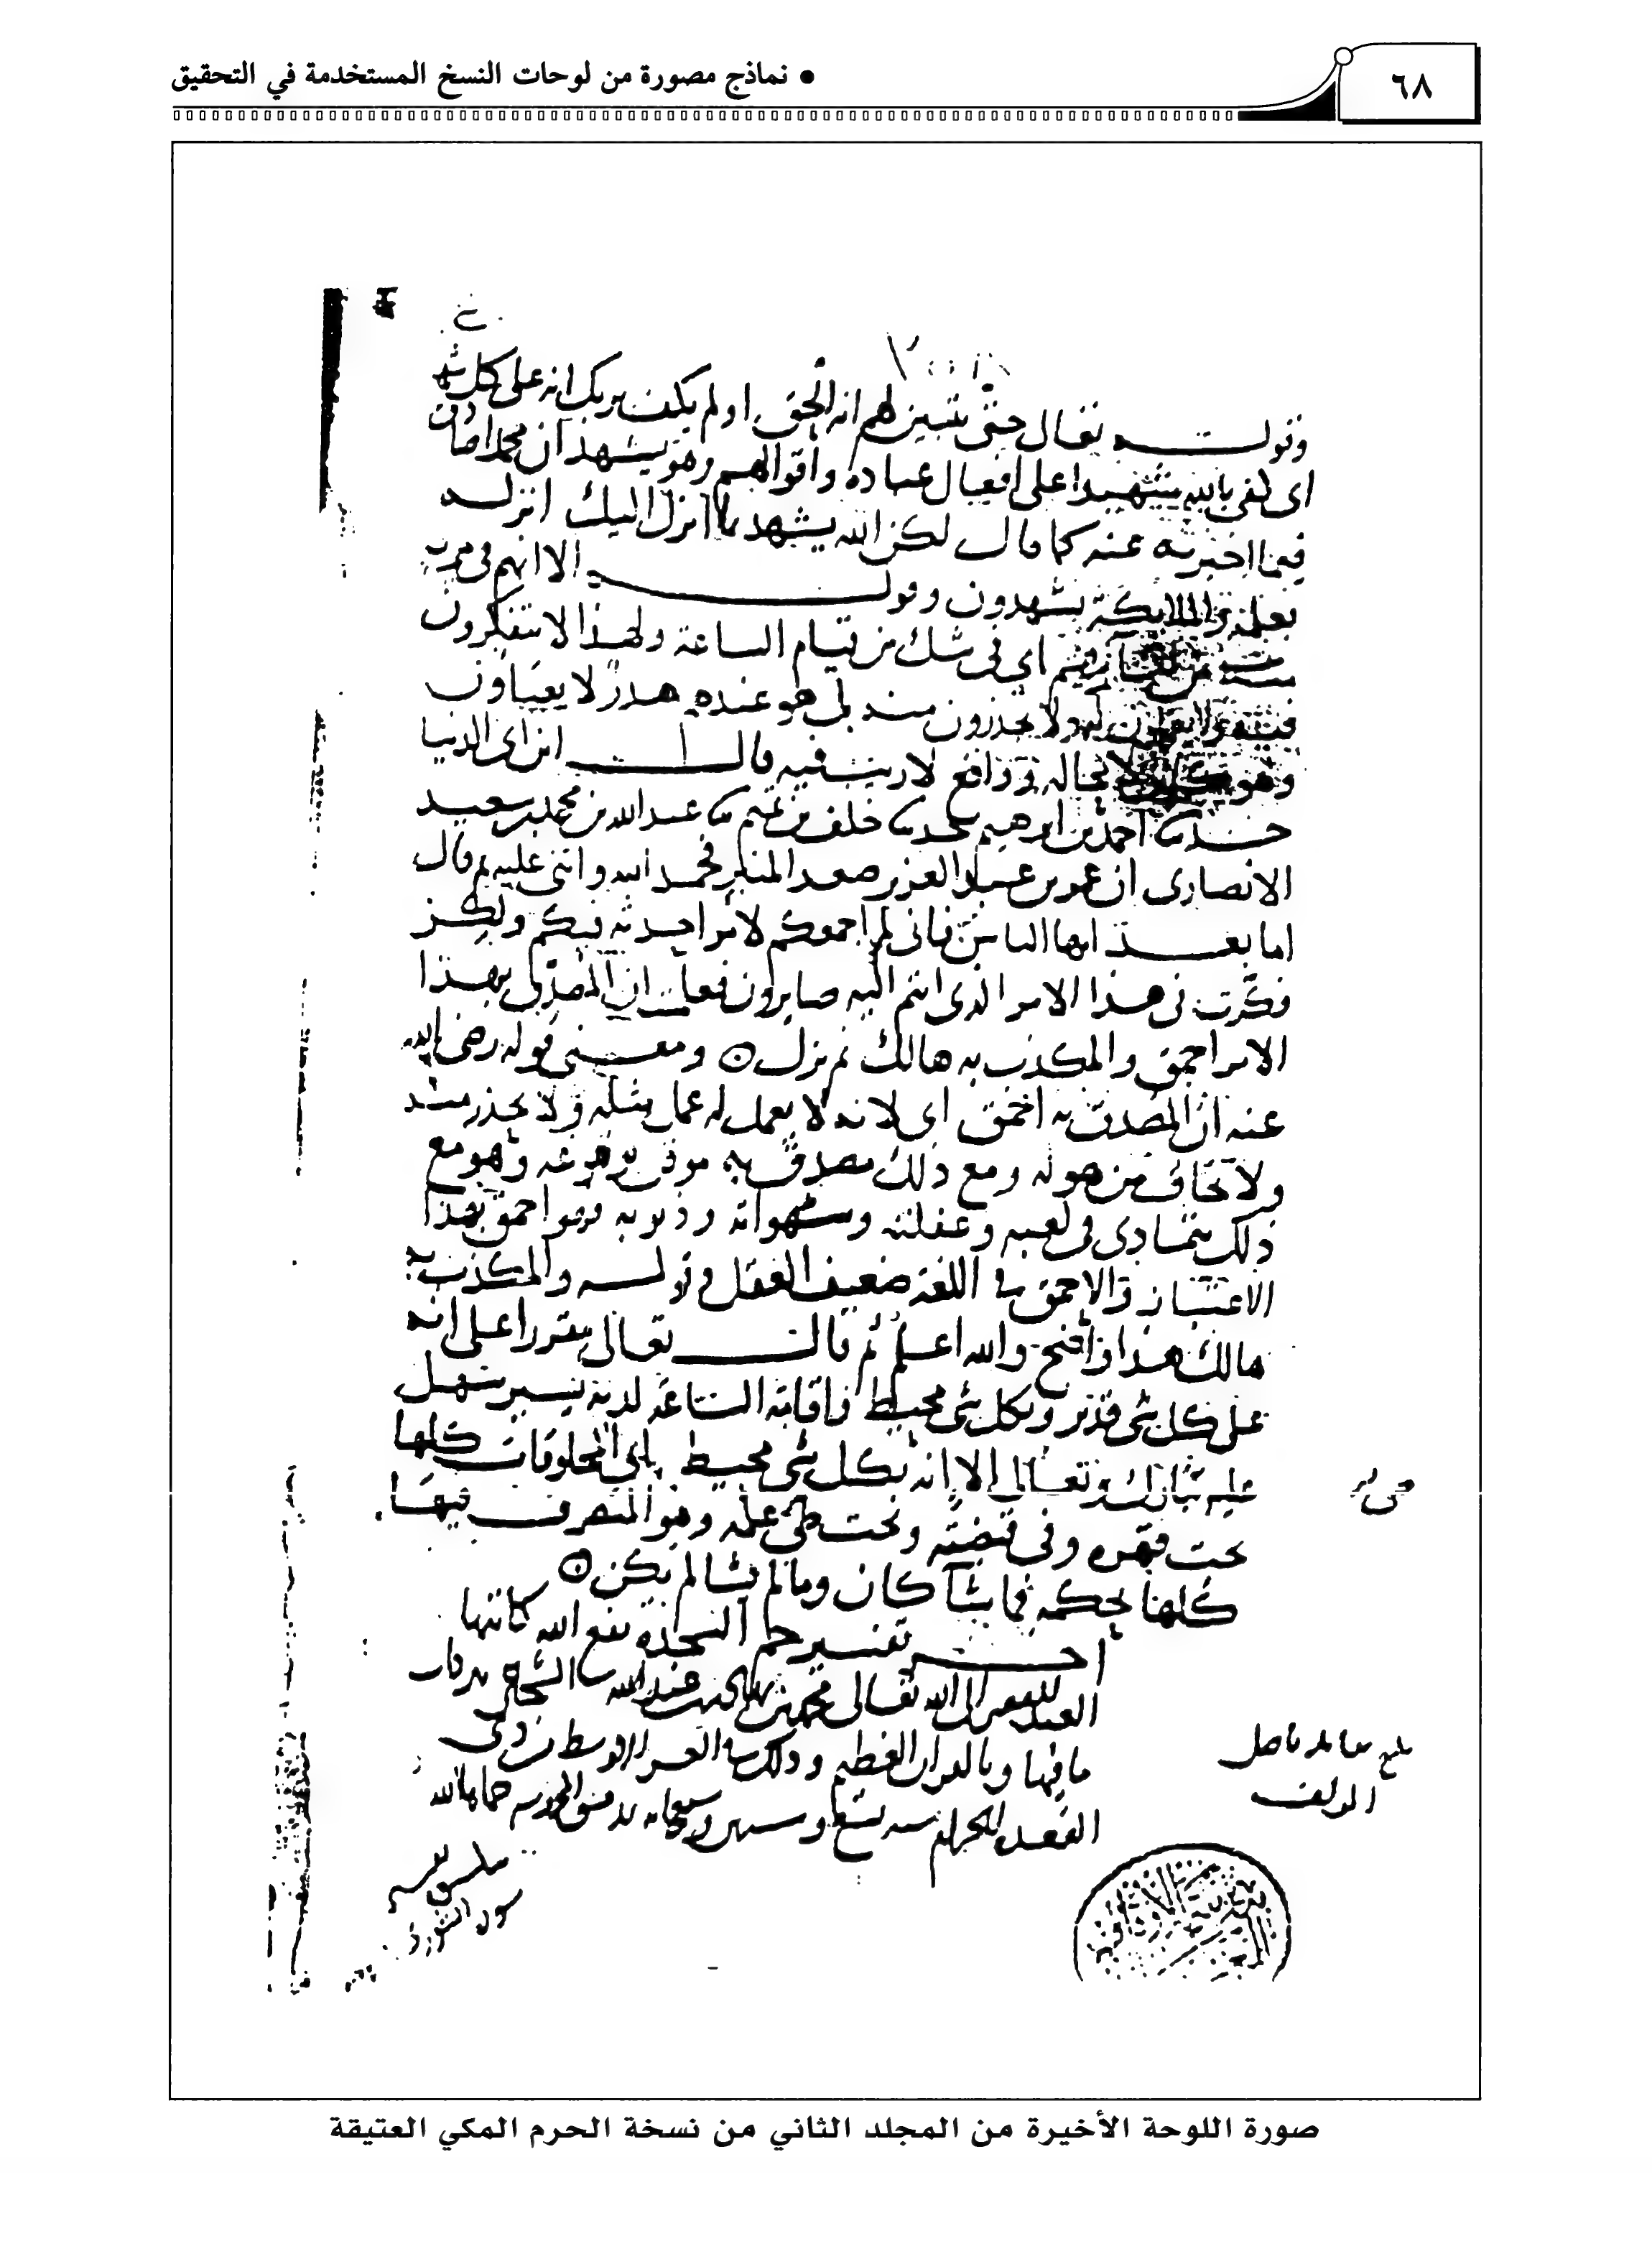 ٦٨
• نماذج مصورة من لوحات النسخ المستخدمة في التحقيق
وقوله تعالى حتى يتبين لهم انه الحق اولم يكف بربك انه على كل شى
اى كفى بالله شهيدا على افعال عباده واقوالهم وهو يشهد ان محمدا صادق
فيما اخبر به عنه كما قال لكن الله يشهد بما انزل اليك انزله
بعلمه والملائكة يشهدون وقوله الا انهم فى مرية
من لقاء ربهم اى فى شك من قيام الساعة ولهذا لا يتفكرون
فيه ولا يعملون له ولا يحذرون منه بل هو عنده هدر لا يعباون
وهو لا محالة وواقع لا ريب فيه قال ابن ابى الدنيا
حدثنا احمد بن ابرهيم خلف بن تميم ثنا عبد الله بن محمد بن سعيد
الانصارى ان عمر بن عبد العزيز صعد المنبر فحمد الله واثنى عليه ثم قال
اما بعد ايها الناس فانى لم اجمعكم لامر احدثه فيكم ولكن
فكرت فى هذا الامر الذى انتم اليه صايرون فعلمت ان المصدق بهذا
الامر احمق والمكذب به هالك ثم نزل ومعنى قوله رضى الله
عنه ان المصدق به احمق اى لانه لا يعمل له عمل مثله ولا يحذر منه
ولا يخاف من هوله ومع ذلك مصدق به موقن بوقوعه وهو مع
ذلك يتمادى فى لعبه وغفلته وشهواته وذنوبه فهو احمق بهذا
الاعتبار والاحمق فى اللغة ضعيف العقل وقوله والمكذب به
هالك هذا واضح والله اعلم ثم قال تعالى مقررا على انه
على كل شى قدير وبكل شى محيط واقامة الساعة لديه يسير سهل
عليه تبارك وتعالى الا انه بكل شى محيط اى المخلوقات كلها
تحت قهره وفى قبضته وتحت طى علمه وهو المتصرف فيها
كلها بحكمه فما شآ كان وما لم يشا لم يكن
اخر تفسير حم السجدة نفع الله كاتبها
العبد الفقير الى الله تعالى
ما فيها وبالقران العظيم وذلك العشر الاوسط من ذى
القعدة الحرام سنه تسع
بلغ مقابلة باصل
المولف
صورة اللوحة الأخيرة من المجلد الثاني من نسخة الحرم المكي العتيقة